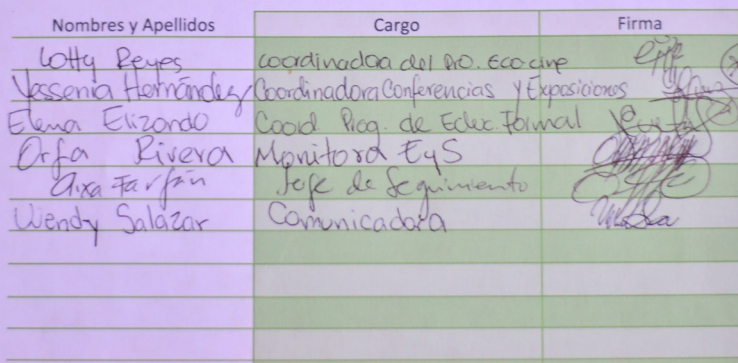 Nombres y Apellidos Cargo Firma
Lotty Reyes coordinadora del Pro. Ecocine
Yessenia Hernández Coordinadora Conferencias y Exposiciones
Elena Elizondo Coord Prog. de Educ. Formal
Orfa Rivera Monitora EyS
Aixa Farfán Jefe de Seguimiento
Wendy Salazar Comunicadora